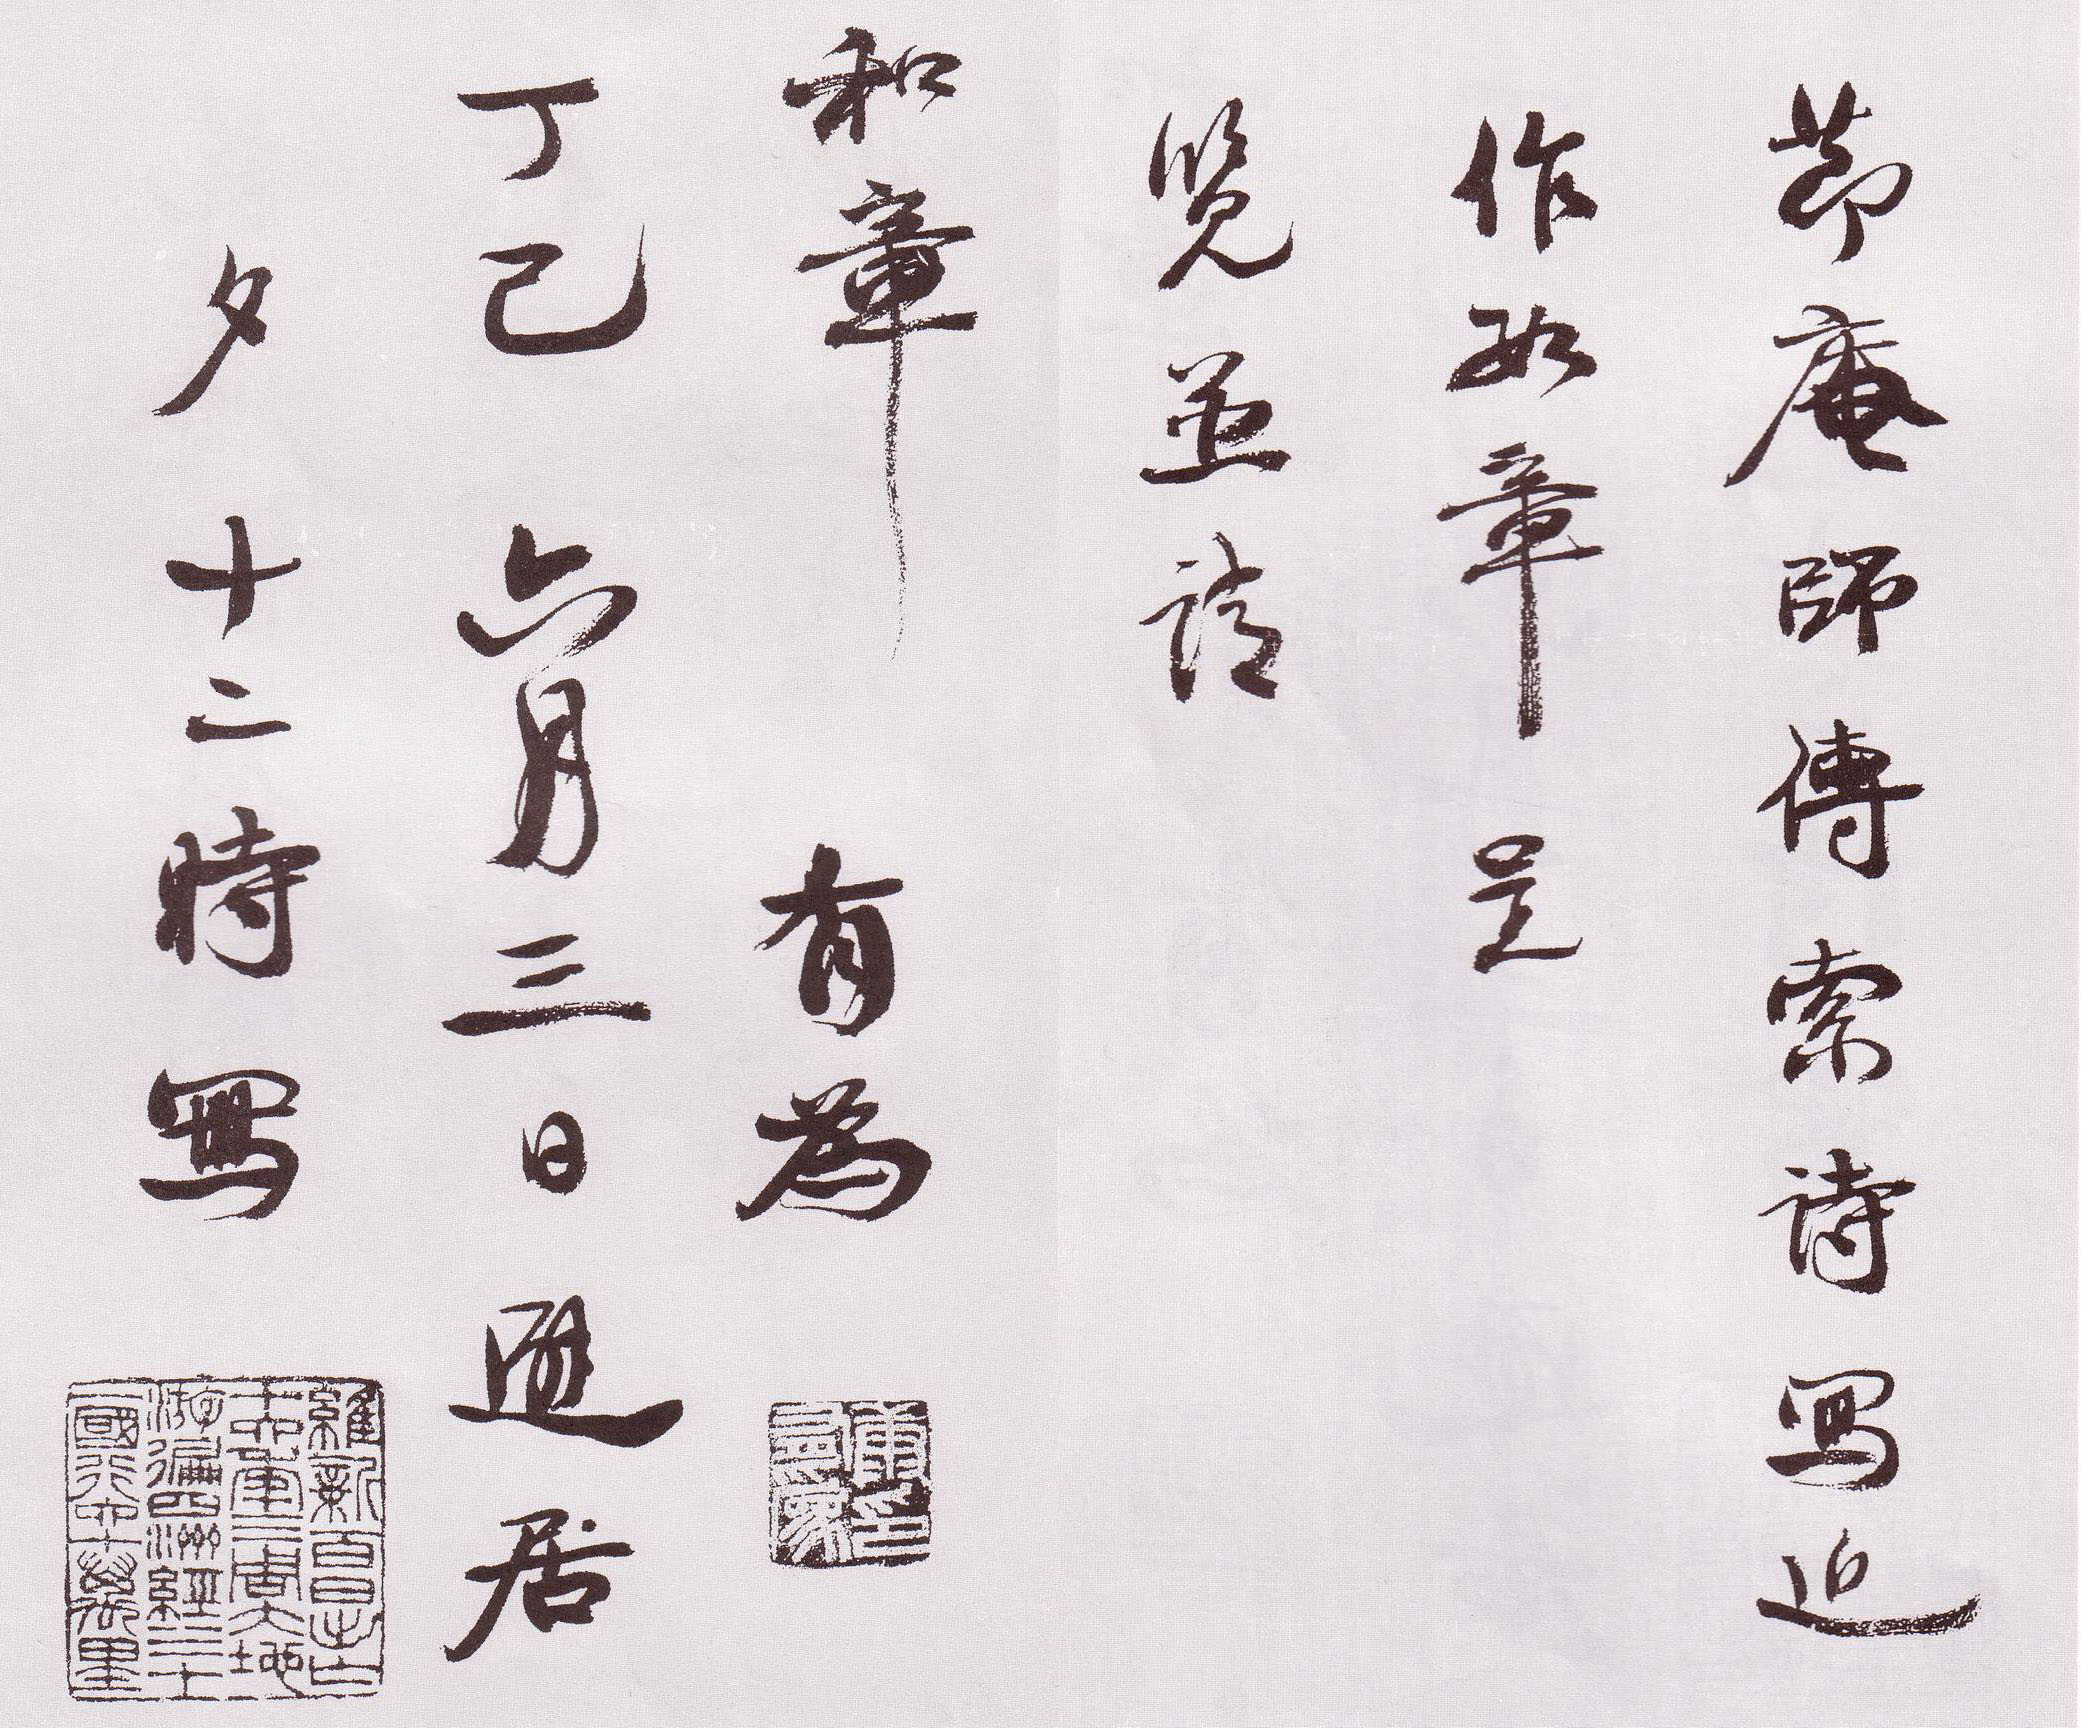 節庵師傅索詩寫近
作數章呈
覽並請
和章 有為
丁巳六月三日匝居
夕十二時寫
康有為印
維新百日出亡
十六年三周大地
游遍四洲經三十
一國行六十萬里